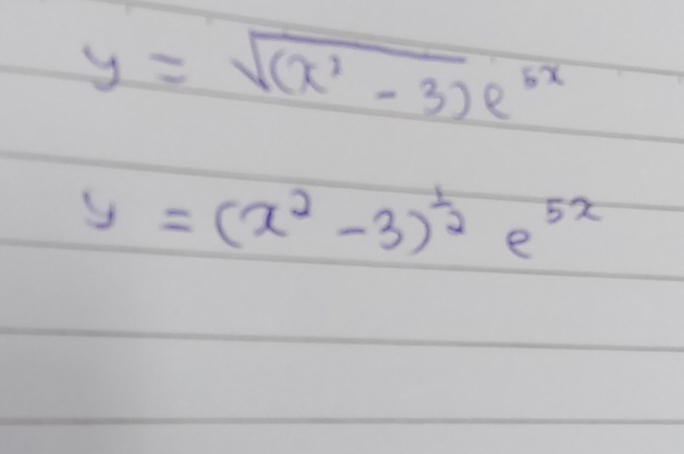 y = √(x² - 3) e^{5x}
y = (x² - 3)^{1/2} e^{5x}